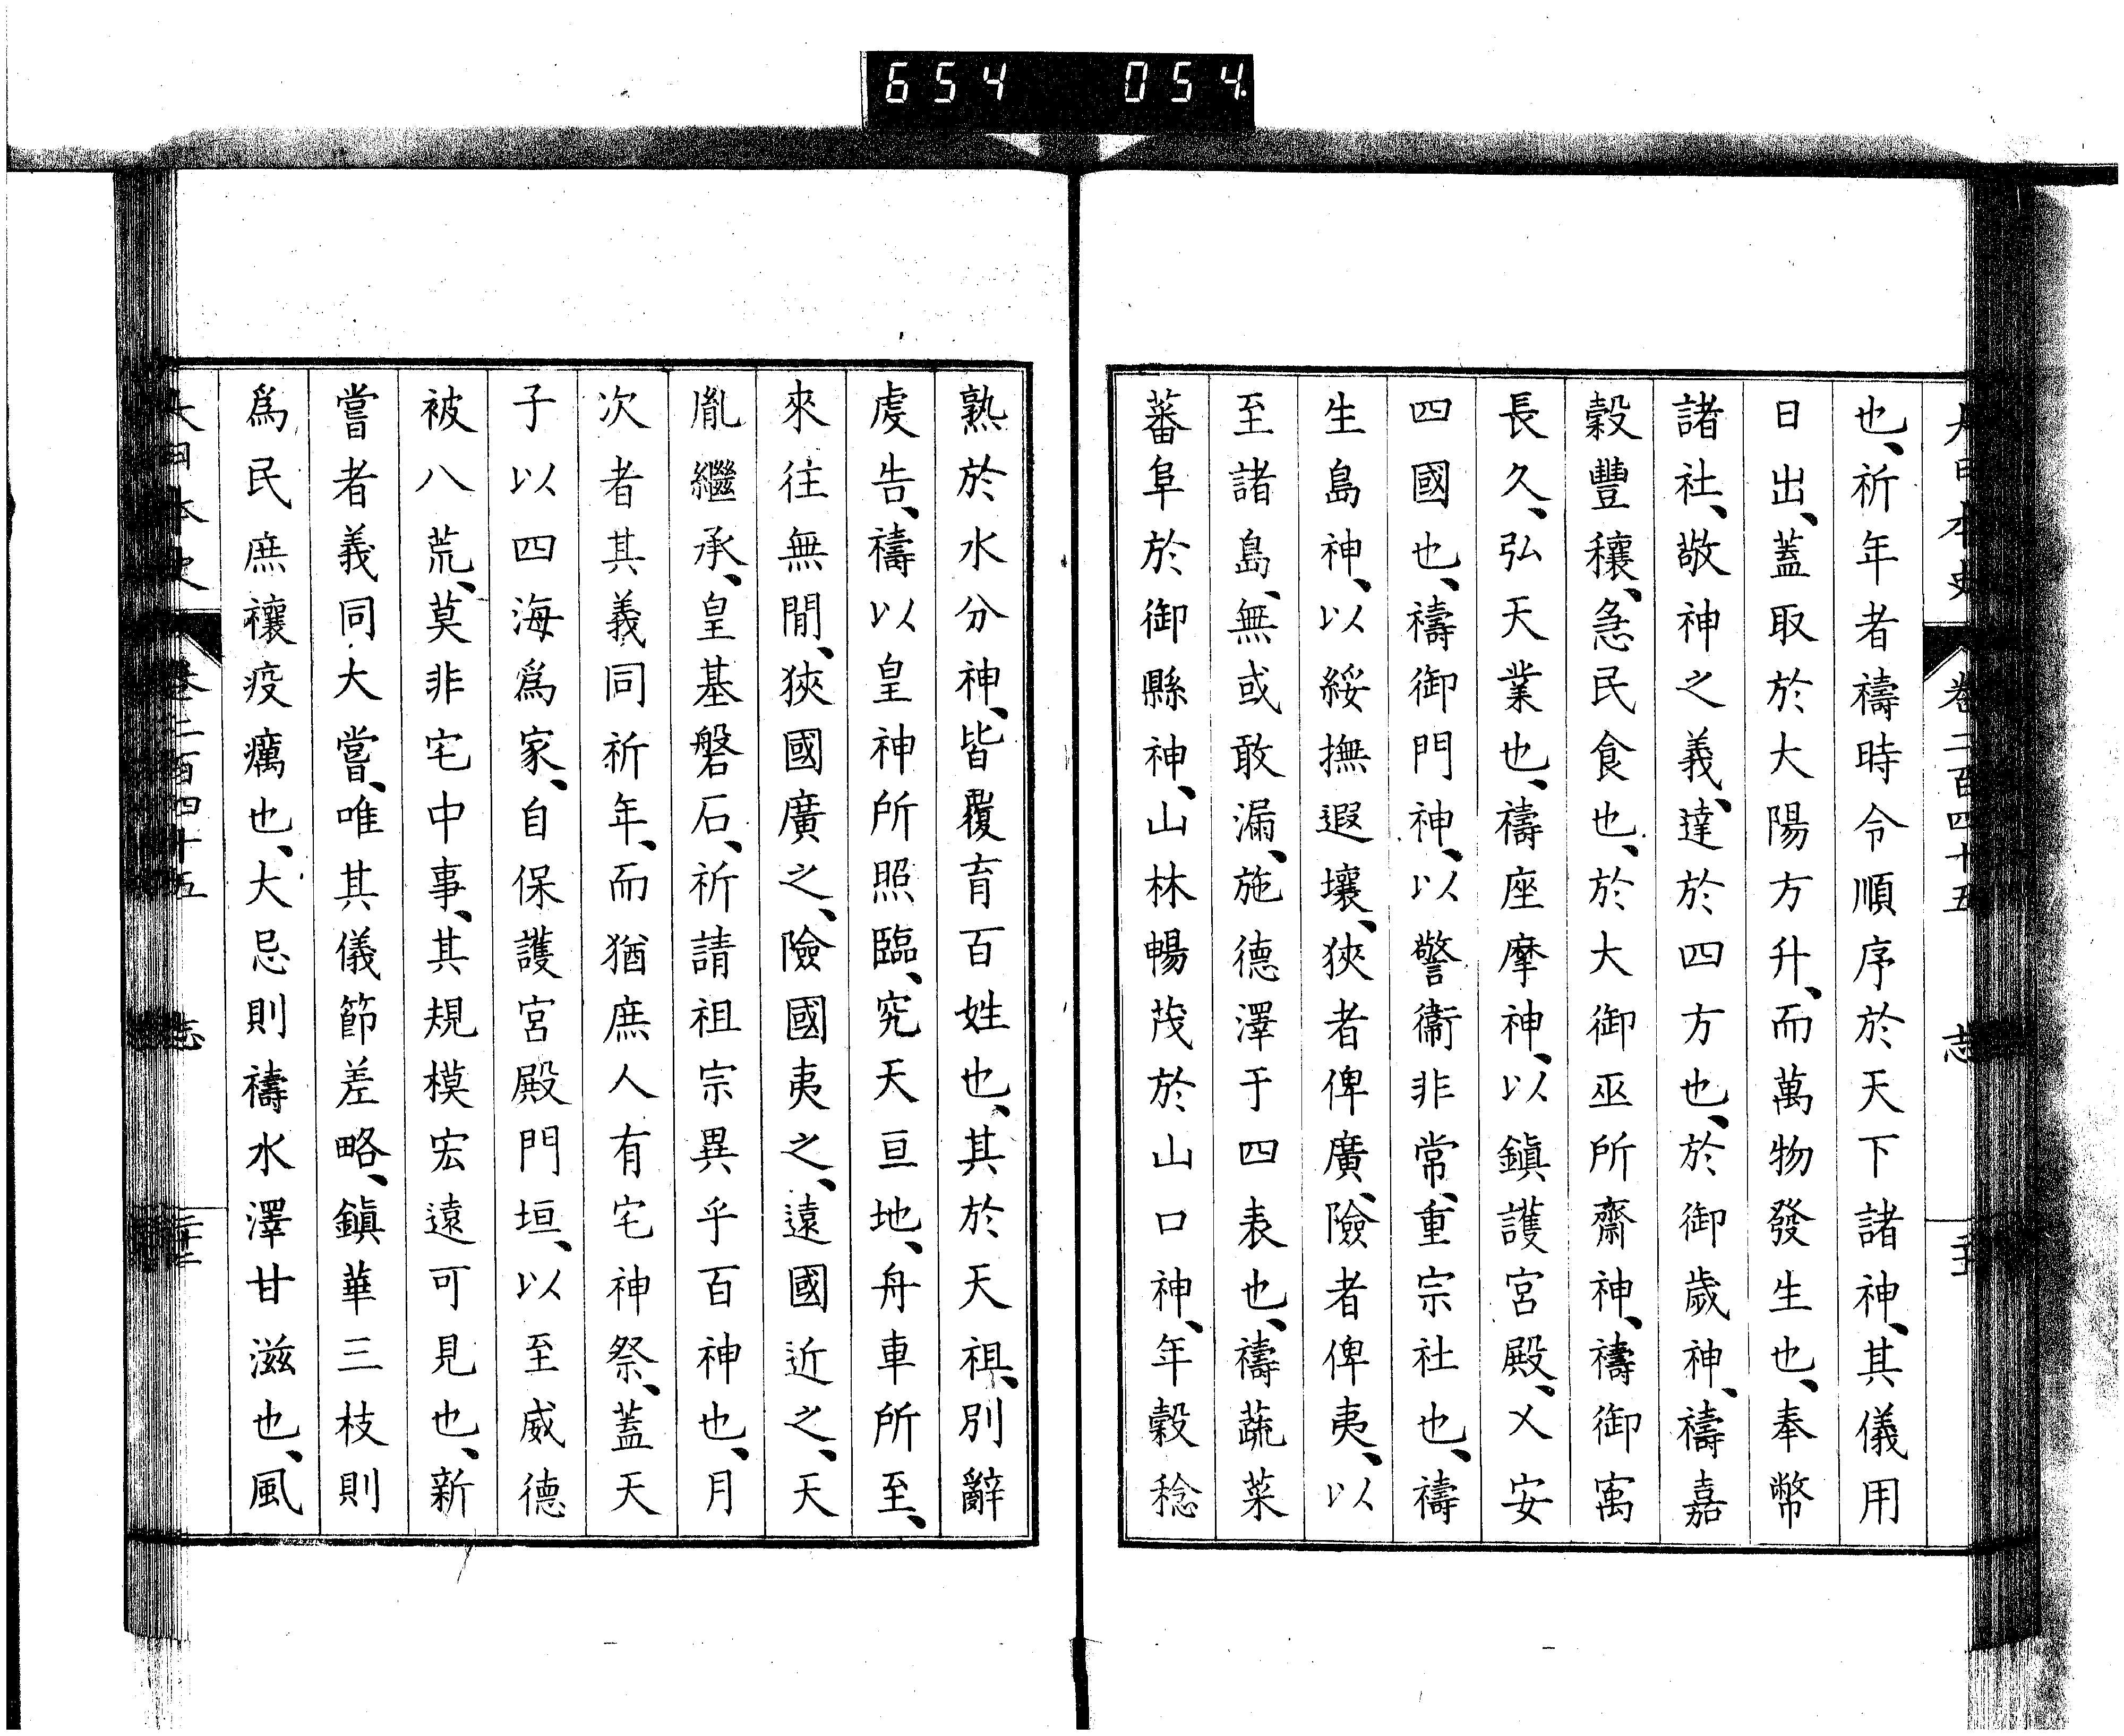 654 054
大日本史 卷二百四十五 志
也、祈年者禱時令順序於天下諸神、其儀用
日出、蓋取於大陽方升、而萬物發生也、奉幣
諸社、敬神之義、達於四方也、於御歲神、禱嘉
穀豐穰、急民食也、於大御巫所齋神、禱御寓
長久、弘天業也、禱座摩神、以鎭護宮殿、乂安
四國也、禱御門神、以警衞非常、重宗社也、禱
生島神、以綏撫遐壤、狹者俾廣、險者俾夷、以
至諸島、無或敢漏、施德澤于四表也、禱蔬菜
蕃阜於御縣神、山林暢茂於山口神、年穀稔
熟於水分神、皆覆育百姓也、其於天祖、別辭
虔告、禱以皇神所照臨、究天亘地、舟車所至、
來往無間、狹國廣之、險國夷之、遠國近之、天
胤繼承、皇基磐石、祈請祖宗異乎百神也、月
次者其義同祈年、而猶庶人有宅神祭、蓋天
子以四海爲家、自保護宮殿門垣、以至威德
被八荒、莫非宅中事、其規模宏遠可見也、新
嘗者義同大嘗、唯其儀節差略、鎭華三枝則
爲民庶禳疫癘也、大忌則禱水澤甘滋也、風
大日本史 卷二百四十五 志